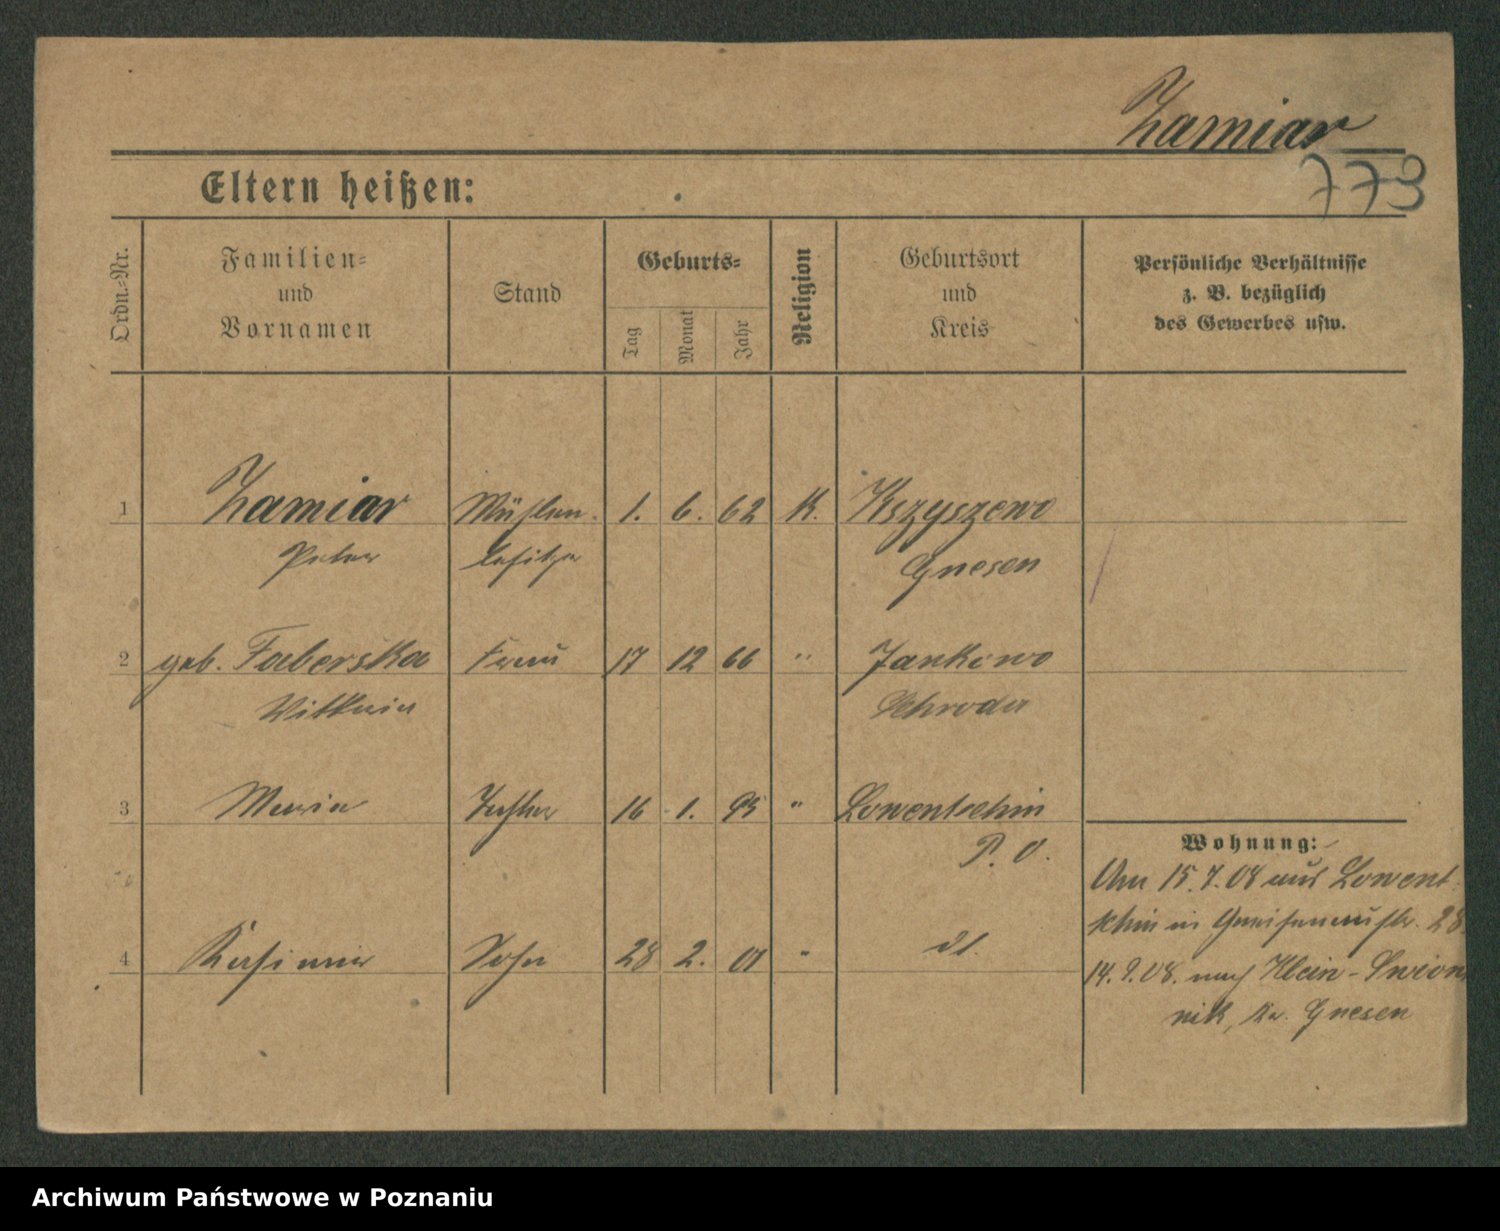 Zamiar
773
Eltern heißen:
Ordn.-Nr.
Familien-
und
Vornamen
Stand
Geburts-
Tag
Monat
Jahr
Religion
Geburtsort
und
Kreis
Persönliche Verhältnisse
z. B. bezüglich
des Gewerbes usw.
1 Zamiar Mühlen- 1. 6. 62 K. Kszyszewo
Peter besitzer Gnesen
2 geb. Faberska Frau 17 12 66 " Jankowo
Schroda
3 Maria Tochter 16 1. 95 " Lowentschin
P. O.
4 Kasimir Sohn 28 2. 01 " dt.
Wohnung:
Am 15.7.08 aus Lowent-
schin in Gneisenaustr. 28
14.9.08. nach Klein-
nik, Kr. Gnesen
Archiwum Państwowe w Poznaniu